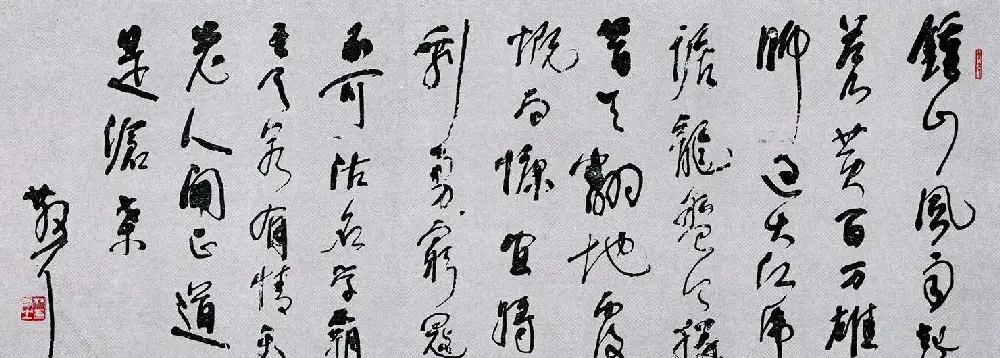 鍾山風雨起
蒼黄百万雄
师过大江虎
踞龍盤今勝
昔天翻地覆
慨而慷宜将
剩勇窮寇
不可沽名学霸
王天若有情天
老人間正道
是滄桑